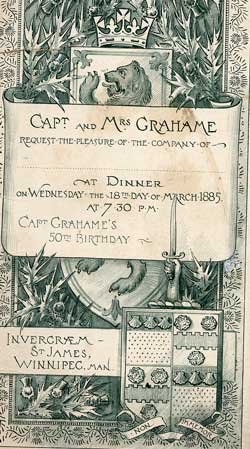 CAPT. AND MRS GRAHAME
REQUEST·THE·PLEASURE·OF·THE·COMPANY·OF
AT DINNER
ON WEDNESDAY·THE·18TH·DAY·OF MARCH·1885.
AT 7·30 P·M·
CAPT GRAHAME'S
50TH BIRTHDAY
INVERGRÆM -
ST JAMES,
WINNIPEG, MAN.
NON IMMEMOR